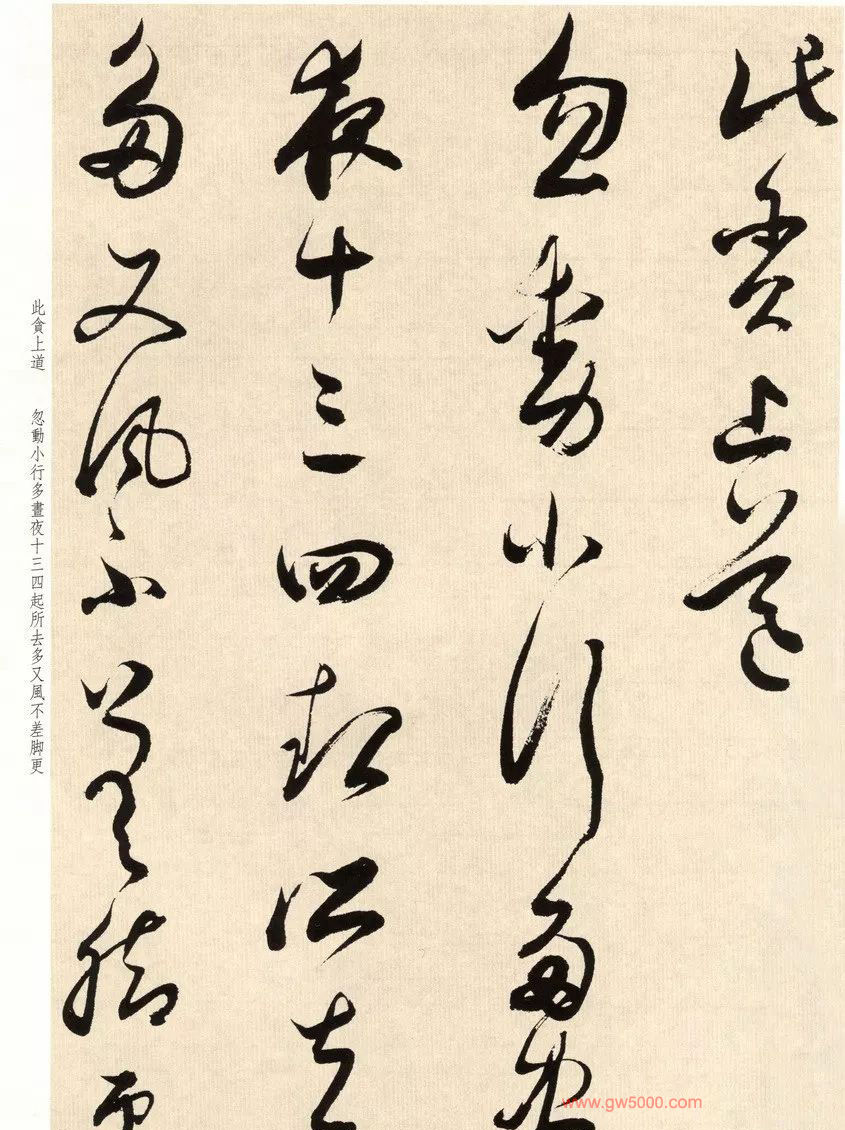 此貪上道
忽動小行多晝
夜十三四起所去
多又風不差脚更
此貪上道　忽動小行多晝夜十三四起所去多又風不差脚更
www.gw5000.com